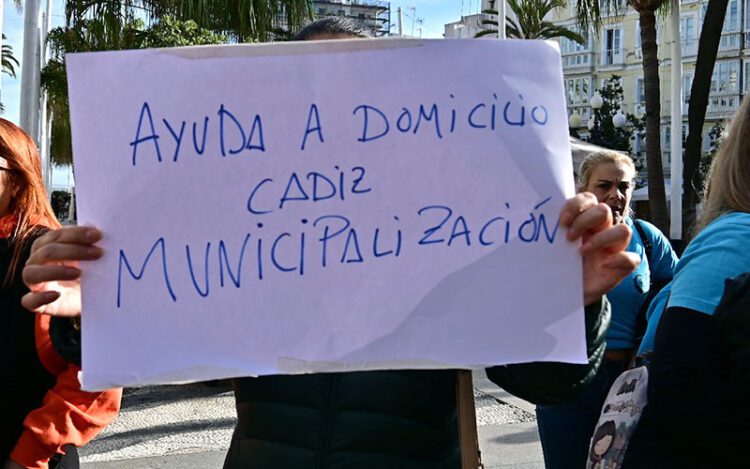 AYUDA A DOMICILIO
CADIZ
MUNICIPALIZACIÓN